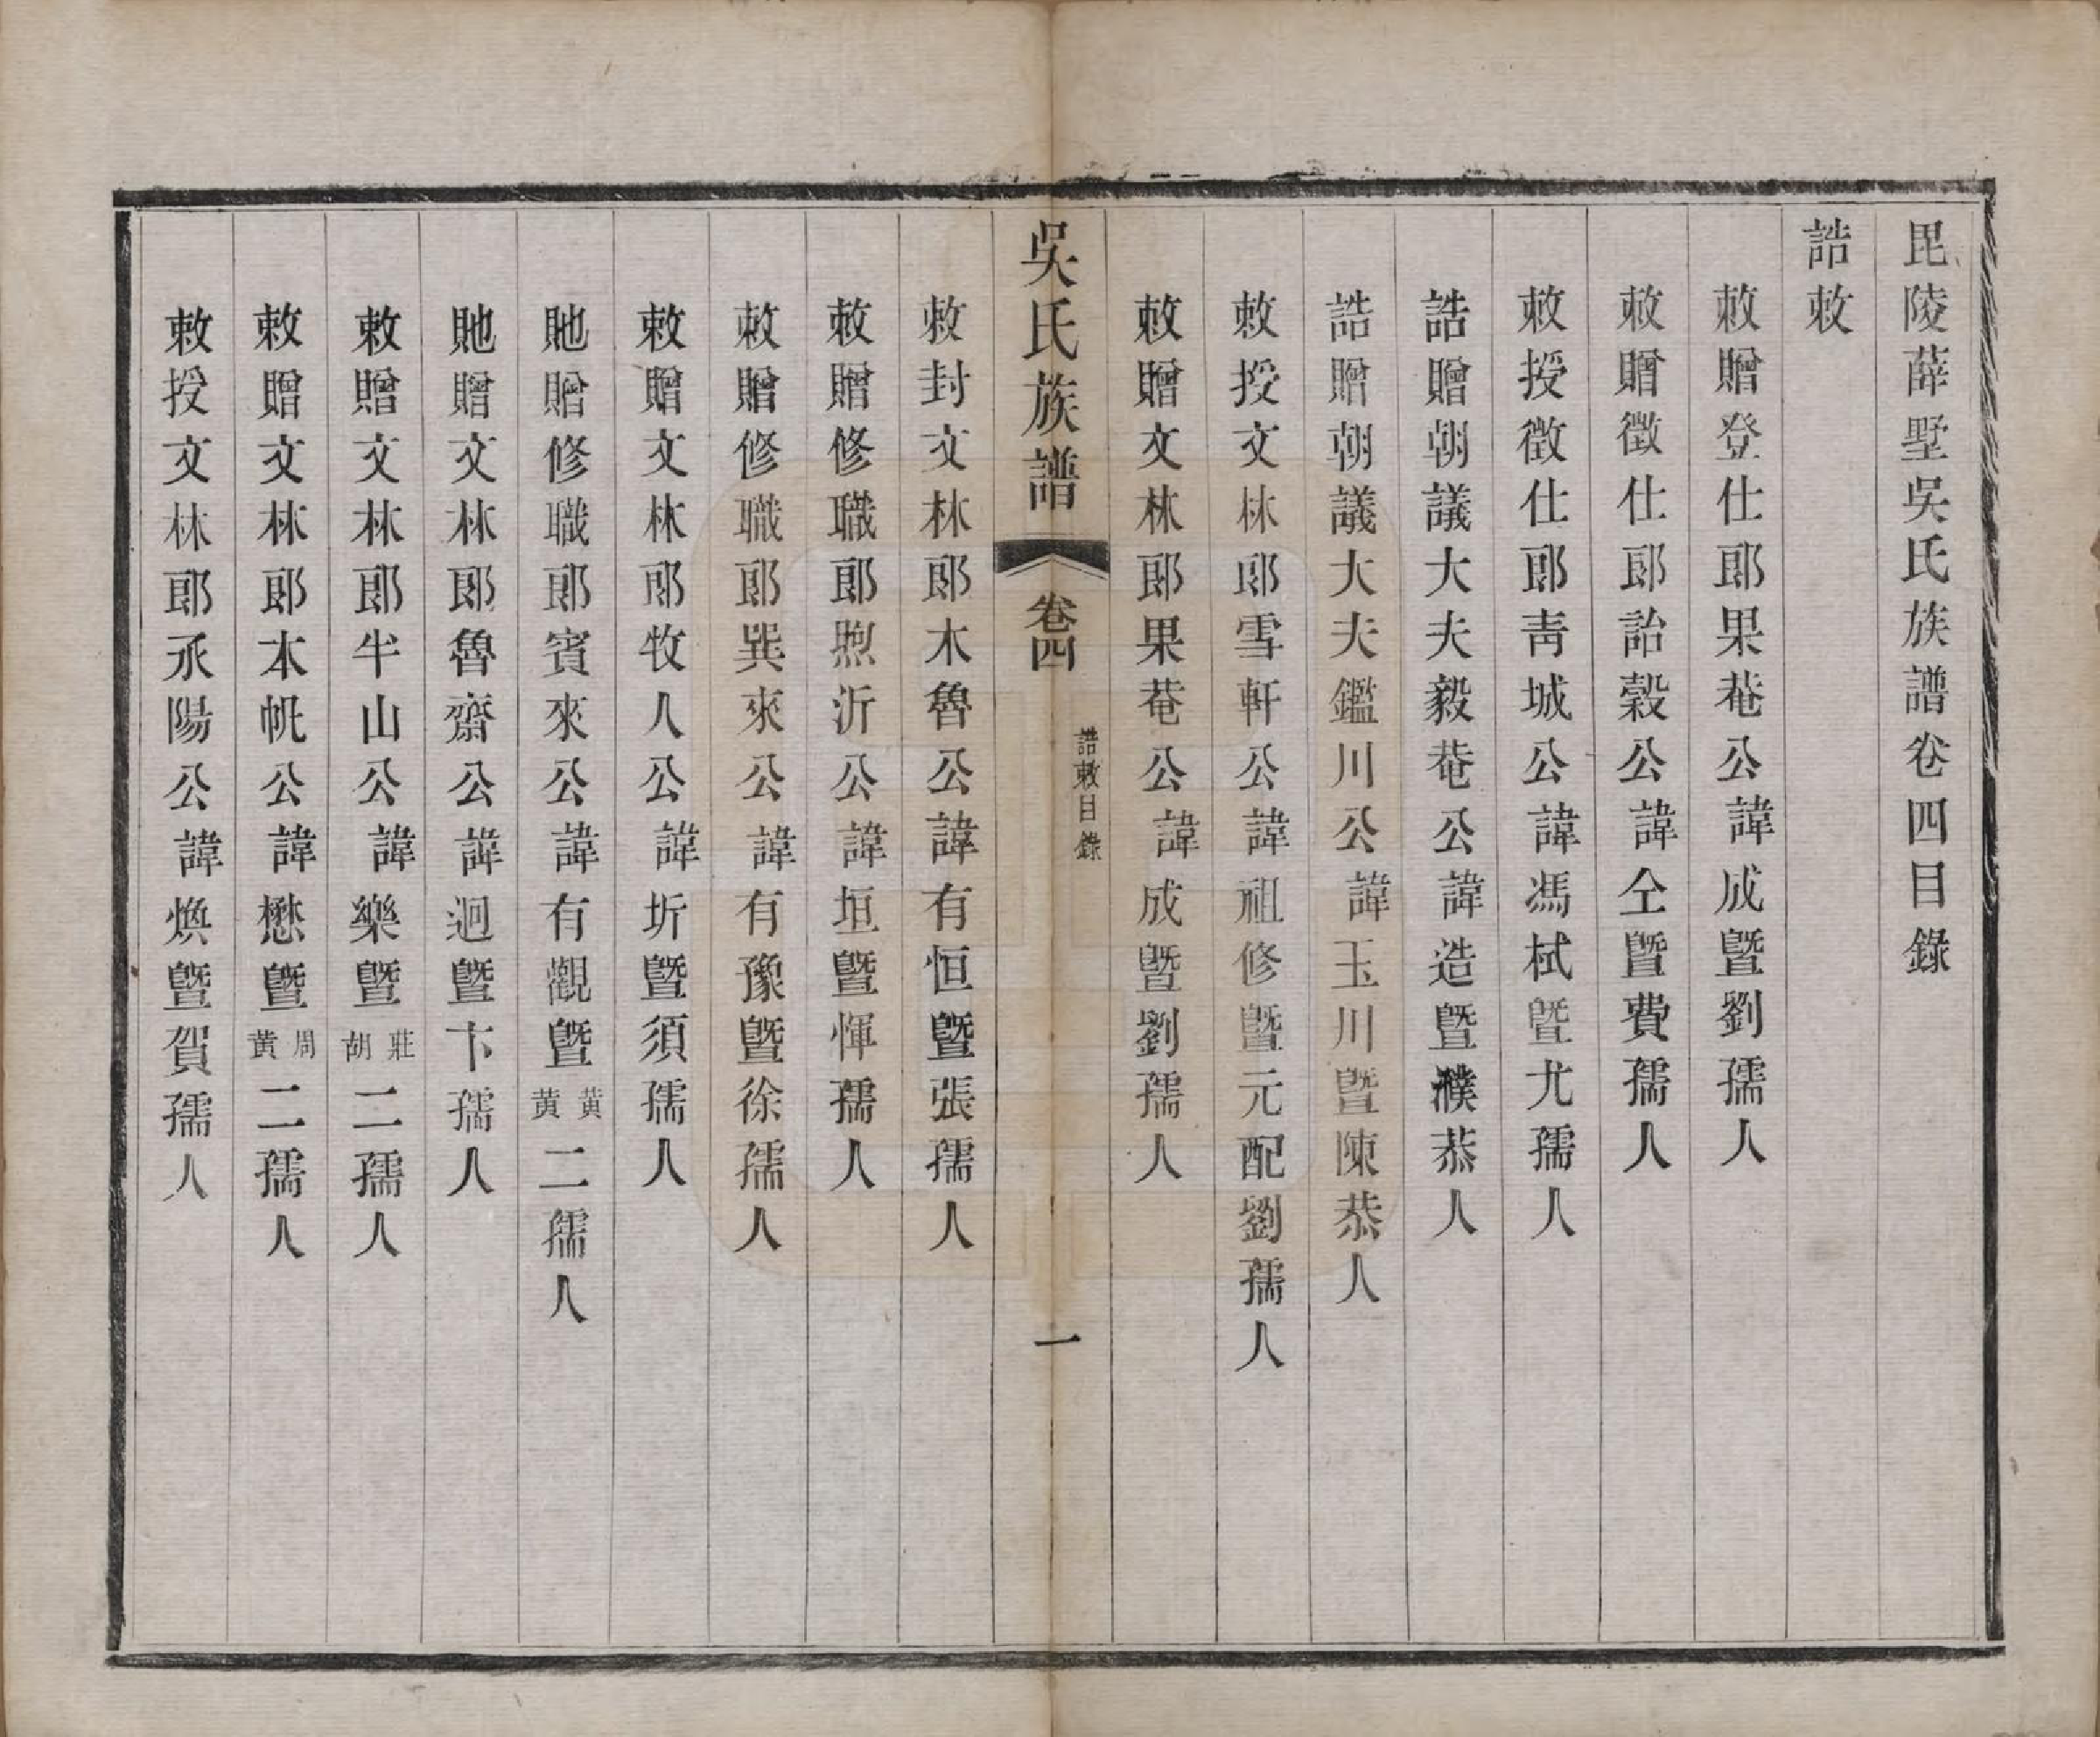 毘陵薛墅吳氏族譜卷四目錄
誥敕
敕贈登仕郎果菴公諱成曁劉孺人
敕贈徵仕郎詒穀公諱仝曁費孺人
敕授徵仕郎靑城公諱馮栻曁尤孺人
誥贈朝議大夫毅菴公諱造曁濮恭人
誥贈朝議大夫鑑川公諱玉川曁陳恭人
敕授文林郎雪軒公諱祖修曁元配劉孺人
敕贈文林郎果菴公諱成曁劉孺人
吳氏族譜 卷四 誥敕目錄 一
敕封文林郎木魯公諱有恒曁張孺人
敕贈修職郎煦沂公諱垣曁惲孺人
敕贈修職郎巽來公諱有豫曁徐孺人
敕贈文林郎牧人公諱圻曁須孺人
貤贈修職郎賓來公諱有觀曁黃黃二孺人
貤贈文林郎魯齋公諱迥曁卞孺人
敕贈文林郎半山公諱樂曁莊胡二孺人
敕贈文林郎本帆公諱懋曁周黃二孺人
敕授文林郎丞陽公諱煥曁賀孺人